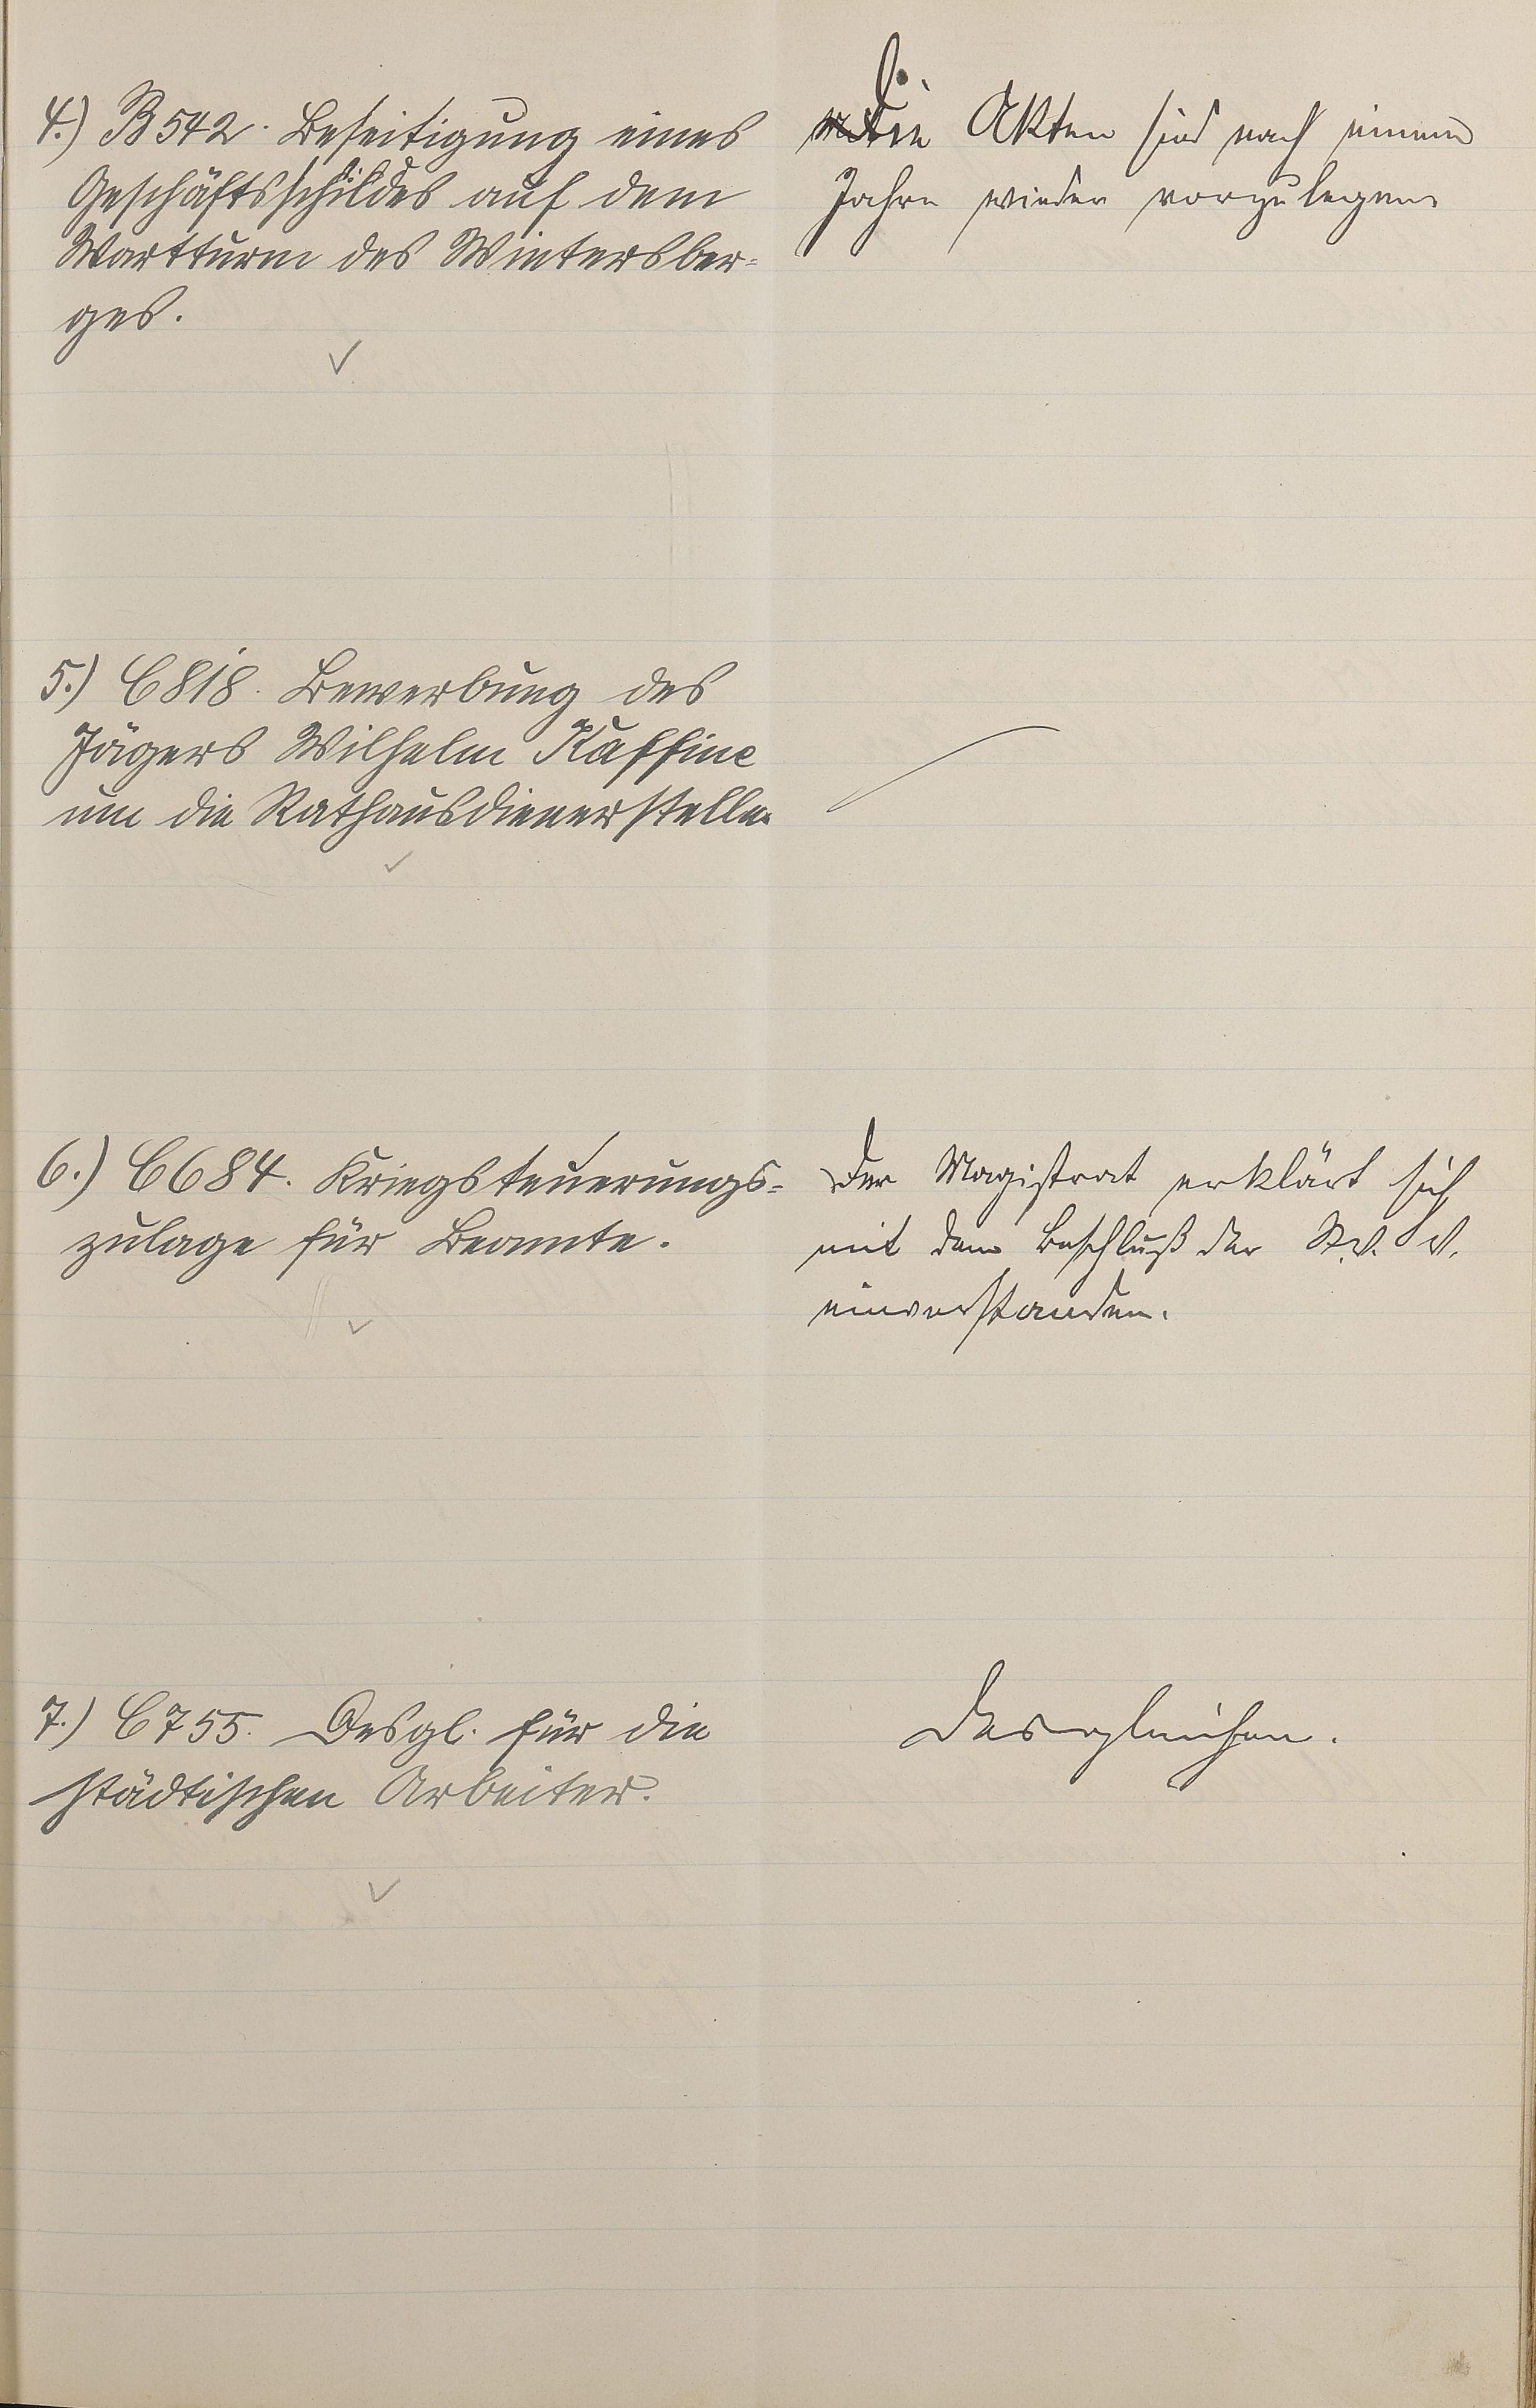 4.) B 542. Beseitigung eines
Geschäftsschildes auf dem
Wartturm des Wintersber-
ges.
Die Akten sind nach einem
Jahre wieder vorzulegen.
5.) C 818. Bewerbung des
Jägers Wilhelm Kaffine
um die Rathausdienerstelle.
6.) C 684. Kriegsteuerungs-
zulage für Beamte.
Der Magistrat erklärt sich
mit dem Beschluß der St. V. V.
einverstanden.
7.) C 755. Desgl. für die
städtischen Arbeiter.
Desgleichen.